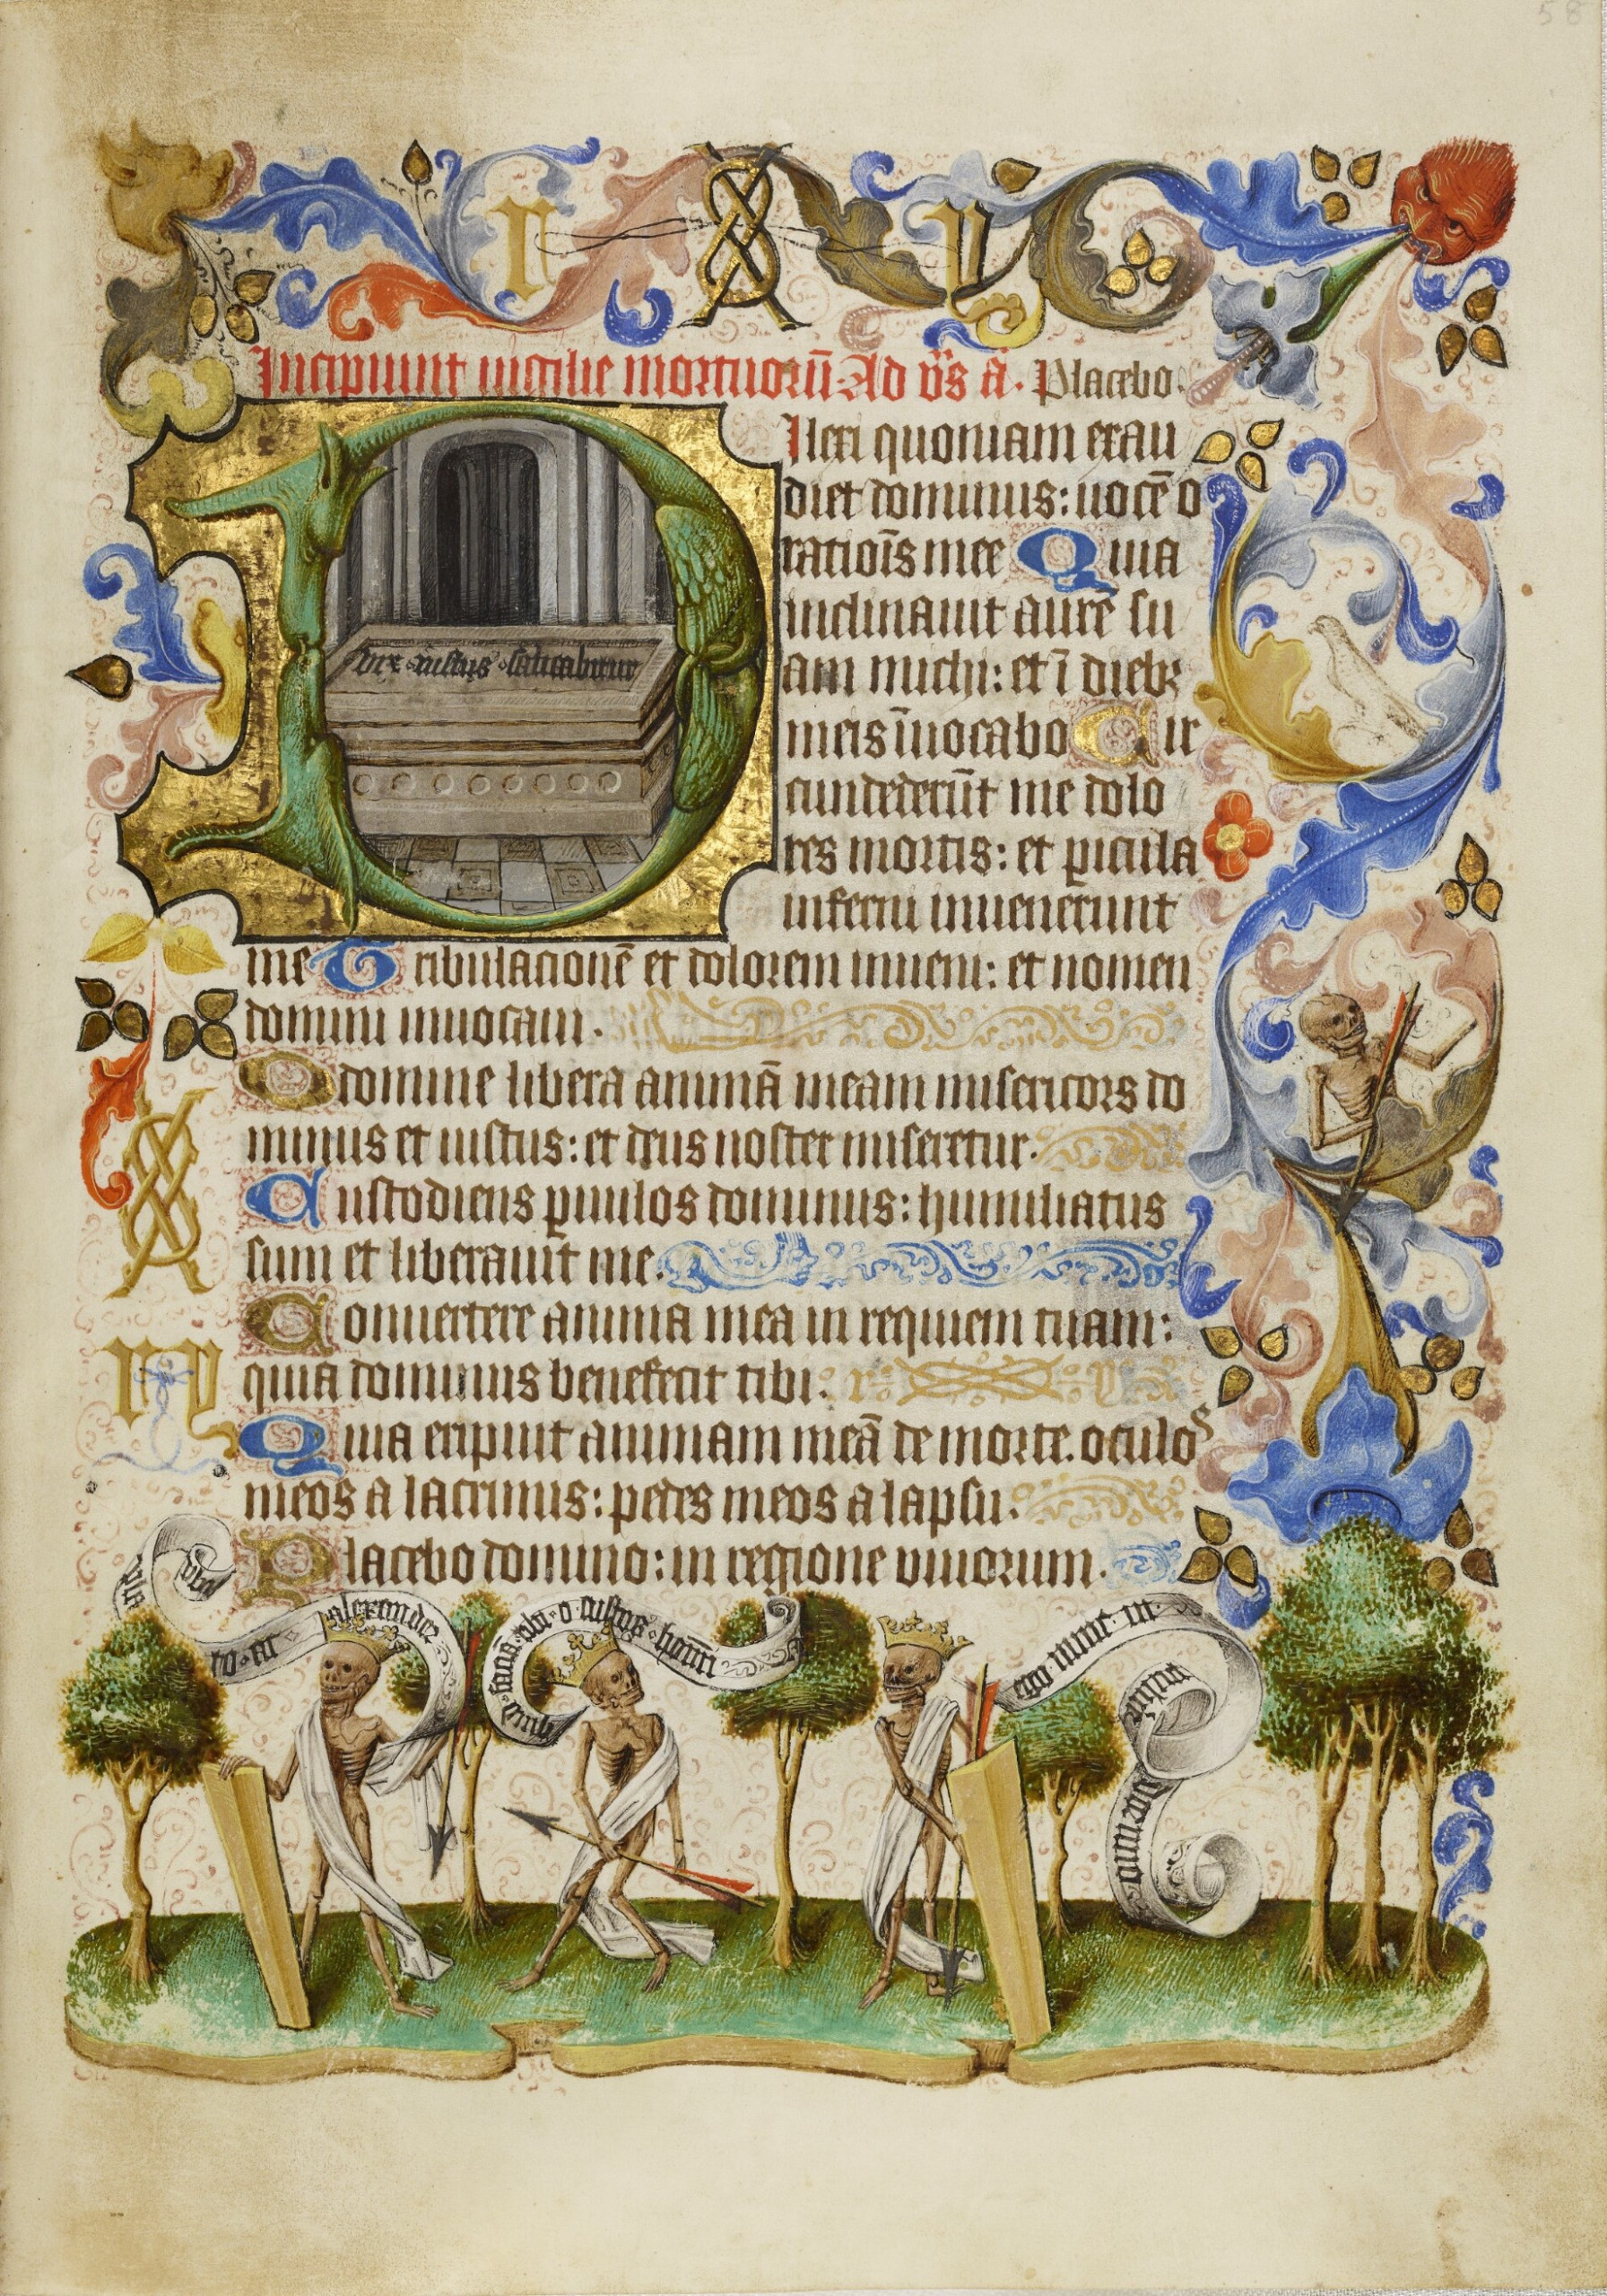 58
Incipiunt vigilie mortuoru̅. Ad v̅s̅ a̅. Placebo.
D Ilexi quoniam exau
diet dominus: uoce̅ o
ratio̅is mee Quia
inclinauit aure̅ su
am michi: et i̅ dieb
meis i̅uocabo Cir
cundederu̅t me dolo
res mortis: et picula
inferni inuenerunt
me Tribulacione̅ et dolorem inueni: et nomen
domini inuocaui.
O domine libera anima̅ meam misericors do
minus et iustus: et deus noster miseretur.
Custodiens puulos dominus: humiliatus
sum et liberauit me.
Conuertere anima mea in requiem tuam:
quia dominus benefecit tibi.
Quia eripuit animam mea̅ de morte. oculos
meos a lacrimis: pedes meos a lapsu.
Placebo domino: in regione uiuorum.
vix iustus saluabitur
alexander
o custos homi̅
ego nunc in
puluere
dormio